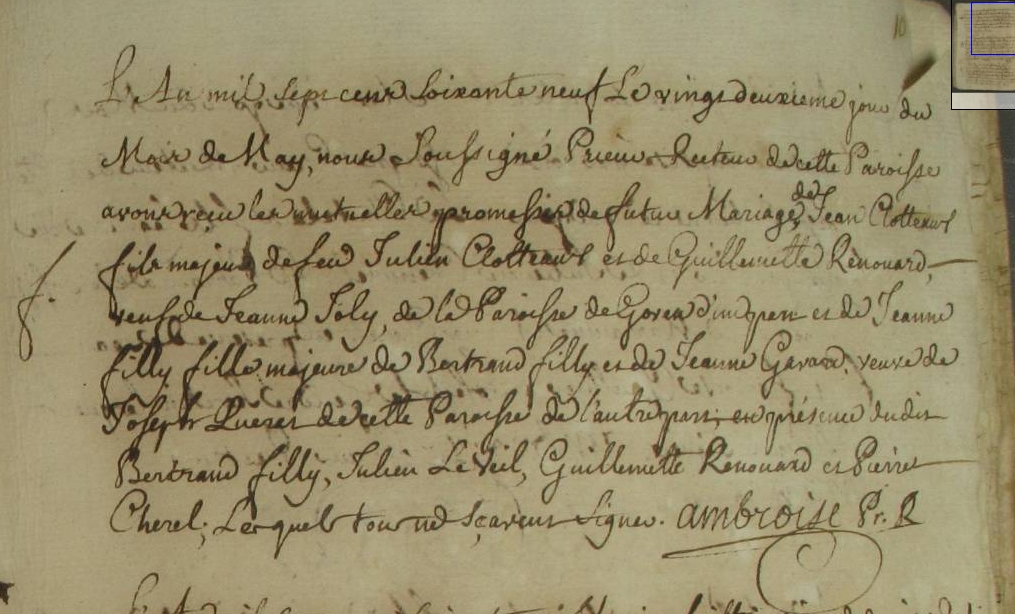 10
L'An mil sept cent soixante neuf Le vingt deuxieme jour du
Mois de May, nous Soussigné Prieur Recteur de cette Paroisse
avons reçu les mutuelles promesses de futur Mariage, de Jean Clotteaux
fils majeur de feu Julien Clotteaux et de Guillemette Renouard,
f.
veuf de Jeanne Joly, de la Paroisse de Goven d'une part et de Jeanne
filly fille majeure de Bertrand filly et de Jeanne Gavard, veuve de
Joseph Queret de cette Paroisse de l'autre part, en présence dudit
Bertrand filly, Julien Le Veil, Guillemette Renouard et Pierre
Cherel; Lesquels tous ne sçavent signer. ambroise Pr. R